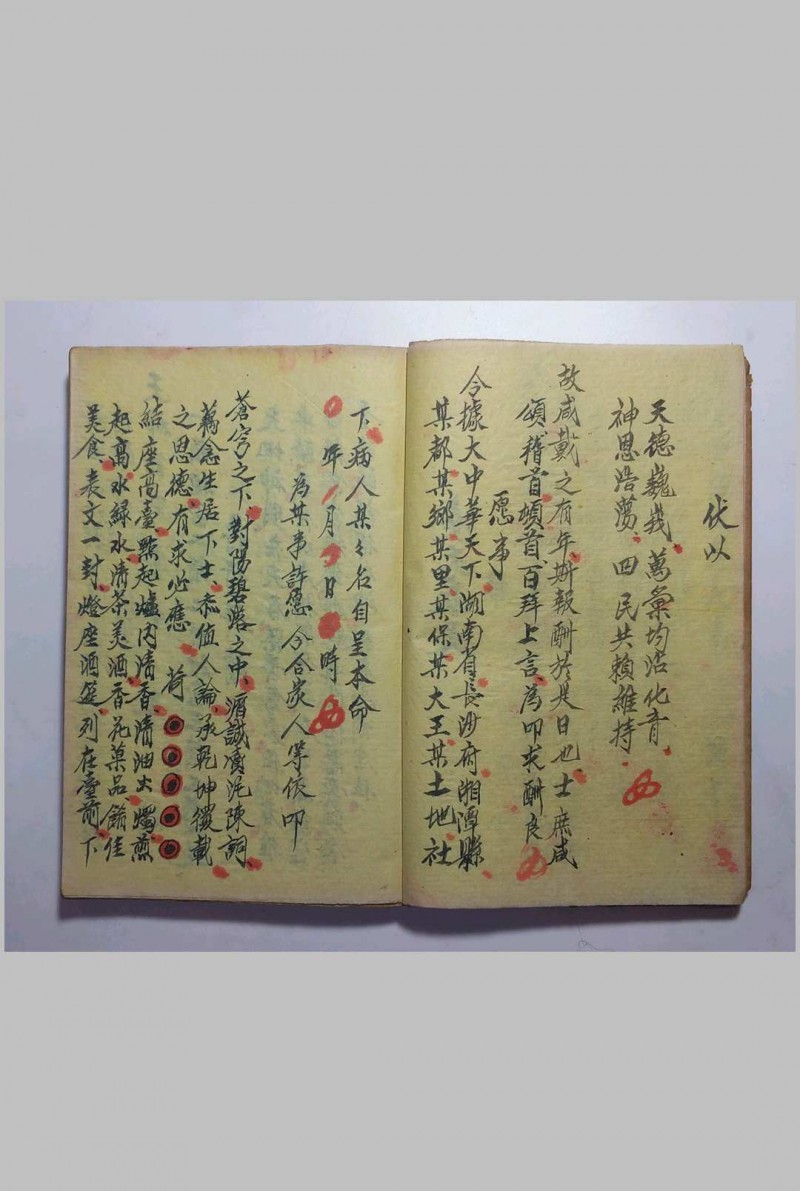 伏以
天德巍峩萬彙均沾化育
神恩浩蕩四民共賴維持
故咸戴之有年斯報酬於是日也士庶咸
頌稽首頓首百拜上言為叩求酬良
愿事
今據大中華天下湖南省長沙府湘潭縣
某都某鄉某里某保某大王某土地社
下病人某々名自呈本命
年月日時
為某事許愿今合炭人等依叩
蒼穹之下對陽碧落之中涓誠凟陳詞
蕅念生居下士忝值人論承乾坤覆載
之恩德有求必應 荷
結座高臺點起爐內清香清油火燭煎
起高水緑水清茶美酒香花菓品餚佳
美食表文一封燈座酒筵列在臺前下